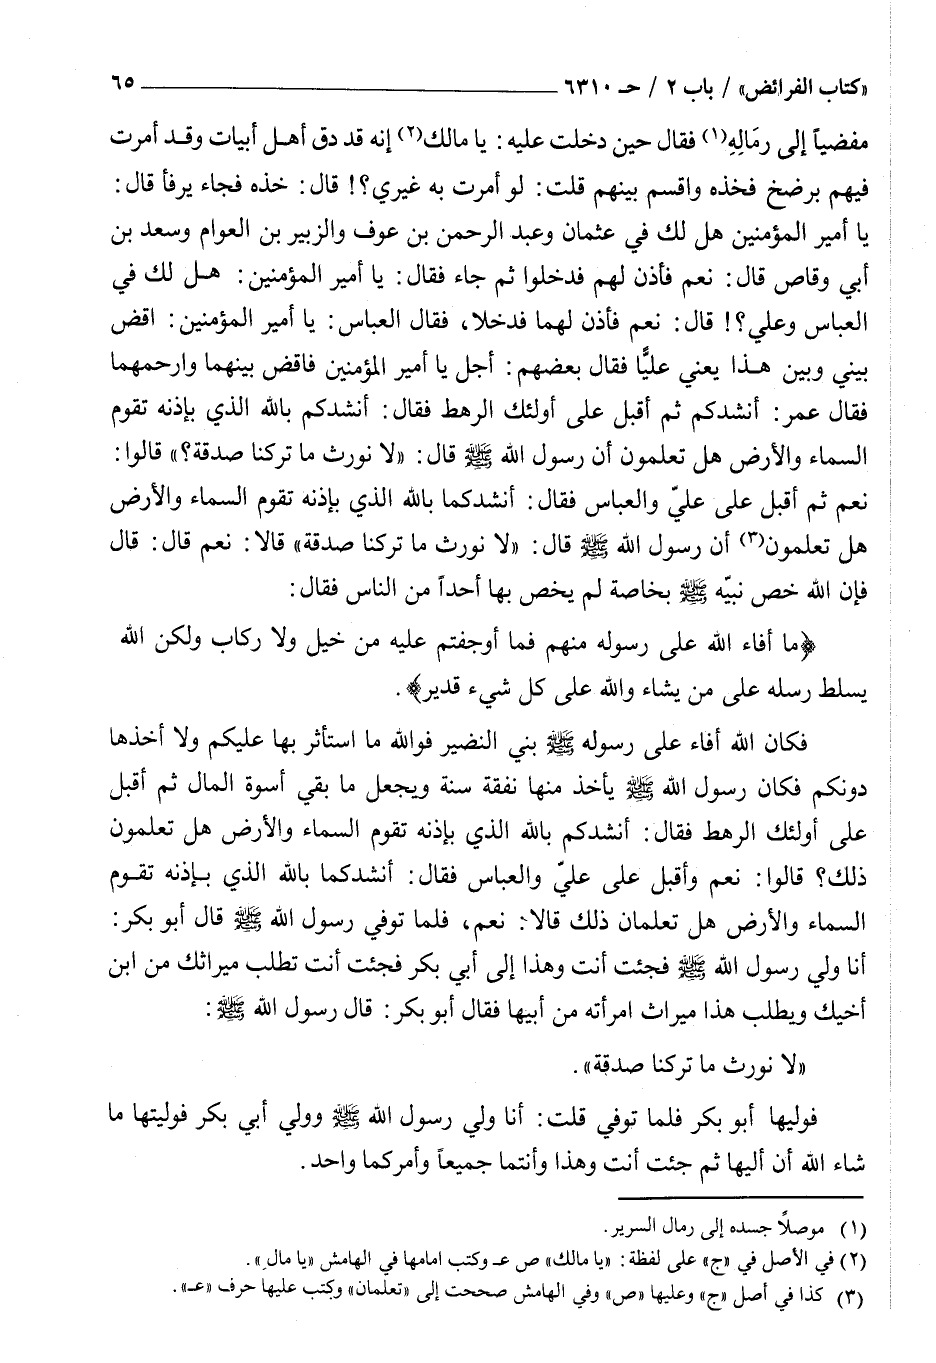 «كتاب الفرائض» / باب ٢ / حـ ٦٣١٠ ٦٥
مفضياً إلى رمَالِهِ(١) فقال حين دخلت عليه: يا مالك(٢) إنه قد دق أهـل أبيات وقـد أمرت
فيهم برضخ فخذه واقسم بينهم قلت: لو أمرت به غيري؟! قال: خذه فجاء يرفأ قال:
يا أمير المؤمنين هل لك في عثمان وعبد الرحمن بن عوف والزبير بن العوام وسعد بن
أبي وقاص قال: نعم فأذن لهم فدخلوا ثم جاء فقال: يا أمير المؤمنين: هـل لك في
العباس وعلي؟! قال: نعم فأذن لهما فدخلا، فقال العباس: يا أمير المؤمنين: اقض
بيني وبين هـذا يعني عليًّا فقال بعضهم: أجل يا أمير المؤمنين فاقض بينهما وارحمهما
فقال عمر: أنشدكم ثم أقبل على أولئك الرهط فقال: أنشدكم بالله الذي بإذنه تقوم
السماء والأرض هل تعلمون أن رسول الله ﷺ قال: «لا نورث ما تركنا صدقة؟» قالوا:
نعم ثم أقبل على عليّ والعباس فقال: أنشدكما بالله الذي بإذنه تقوم السماء والأرض
هل تعلمون(٣) أن رسول الله ﷺ قال: «لا نورث ما تركنا صدقة» قالا: نعم قال: قال
فإن الله خص نبيّه ﷺ بخاصة لم يخص بها أحداً من الناس فقال:
﴿ما أفاء الله على رسوله منهم فما أوجفتم عليه من خيل ولا ركاب ولكن الله
يسلط رسله على من يشاء والله على كل شيء قدير﴾.
فكان الله أفاء على رسوله ﷺ بني النضير فوالله ما استأثر بها عليكم ولا أخذها
دونكم فكان رسول الله ﷺ يأخذ منها نفقة سنة ويجعل ما بقي أسوة المال ثم أقبل
على أولئك الرهط فقال: أنشدكم بالله الذي بإذنه تقوم السماء والأرض هل تعلمون
ذلك؟ قالوا: نعم وأقبل على عليّ والعباس فقال: أنشدكما بالله الذي بـإذنه تقـوم
السماء والأرض هل تعلمان ذلك قالا: نعم، فلما توفي رسول الله ﷺ قال أبو بكر:
أنا ولي رسول الله ﷺ فجئت أنت وهذا إلى أبي بكر فجئت أنت تطلب ميراثك من ابن
أخيك ويطلب هذا ميراث امرأته من أبيها فقال أبو بكر: قال رسول الله ﷺ:
«لا نورث ما تركنا صدقة».
فوليها أبو بكر فلما توفي قلت: أنا ولي رسول الله ﷺ وولي أبي بكر فوليتها ما
شاء الله أن أليها ثم جئت أنت وهذا وأنتما جميعاً وأمركما واحد.
(١) موصلًا جسده إلى رمال السرير.
(٢) في الأصل في «ج» على لفظة: «يا مالك» ص عـ وكتب امامها في الهامش «يا مال».
(٣) كذا في أصل «ج» وعليها «ص» وفي الهامش صححت إلى «تعلمان» وكتب عليها حرف «عـ».